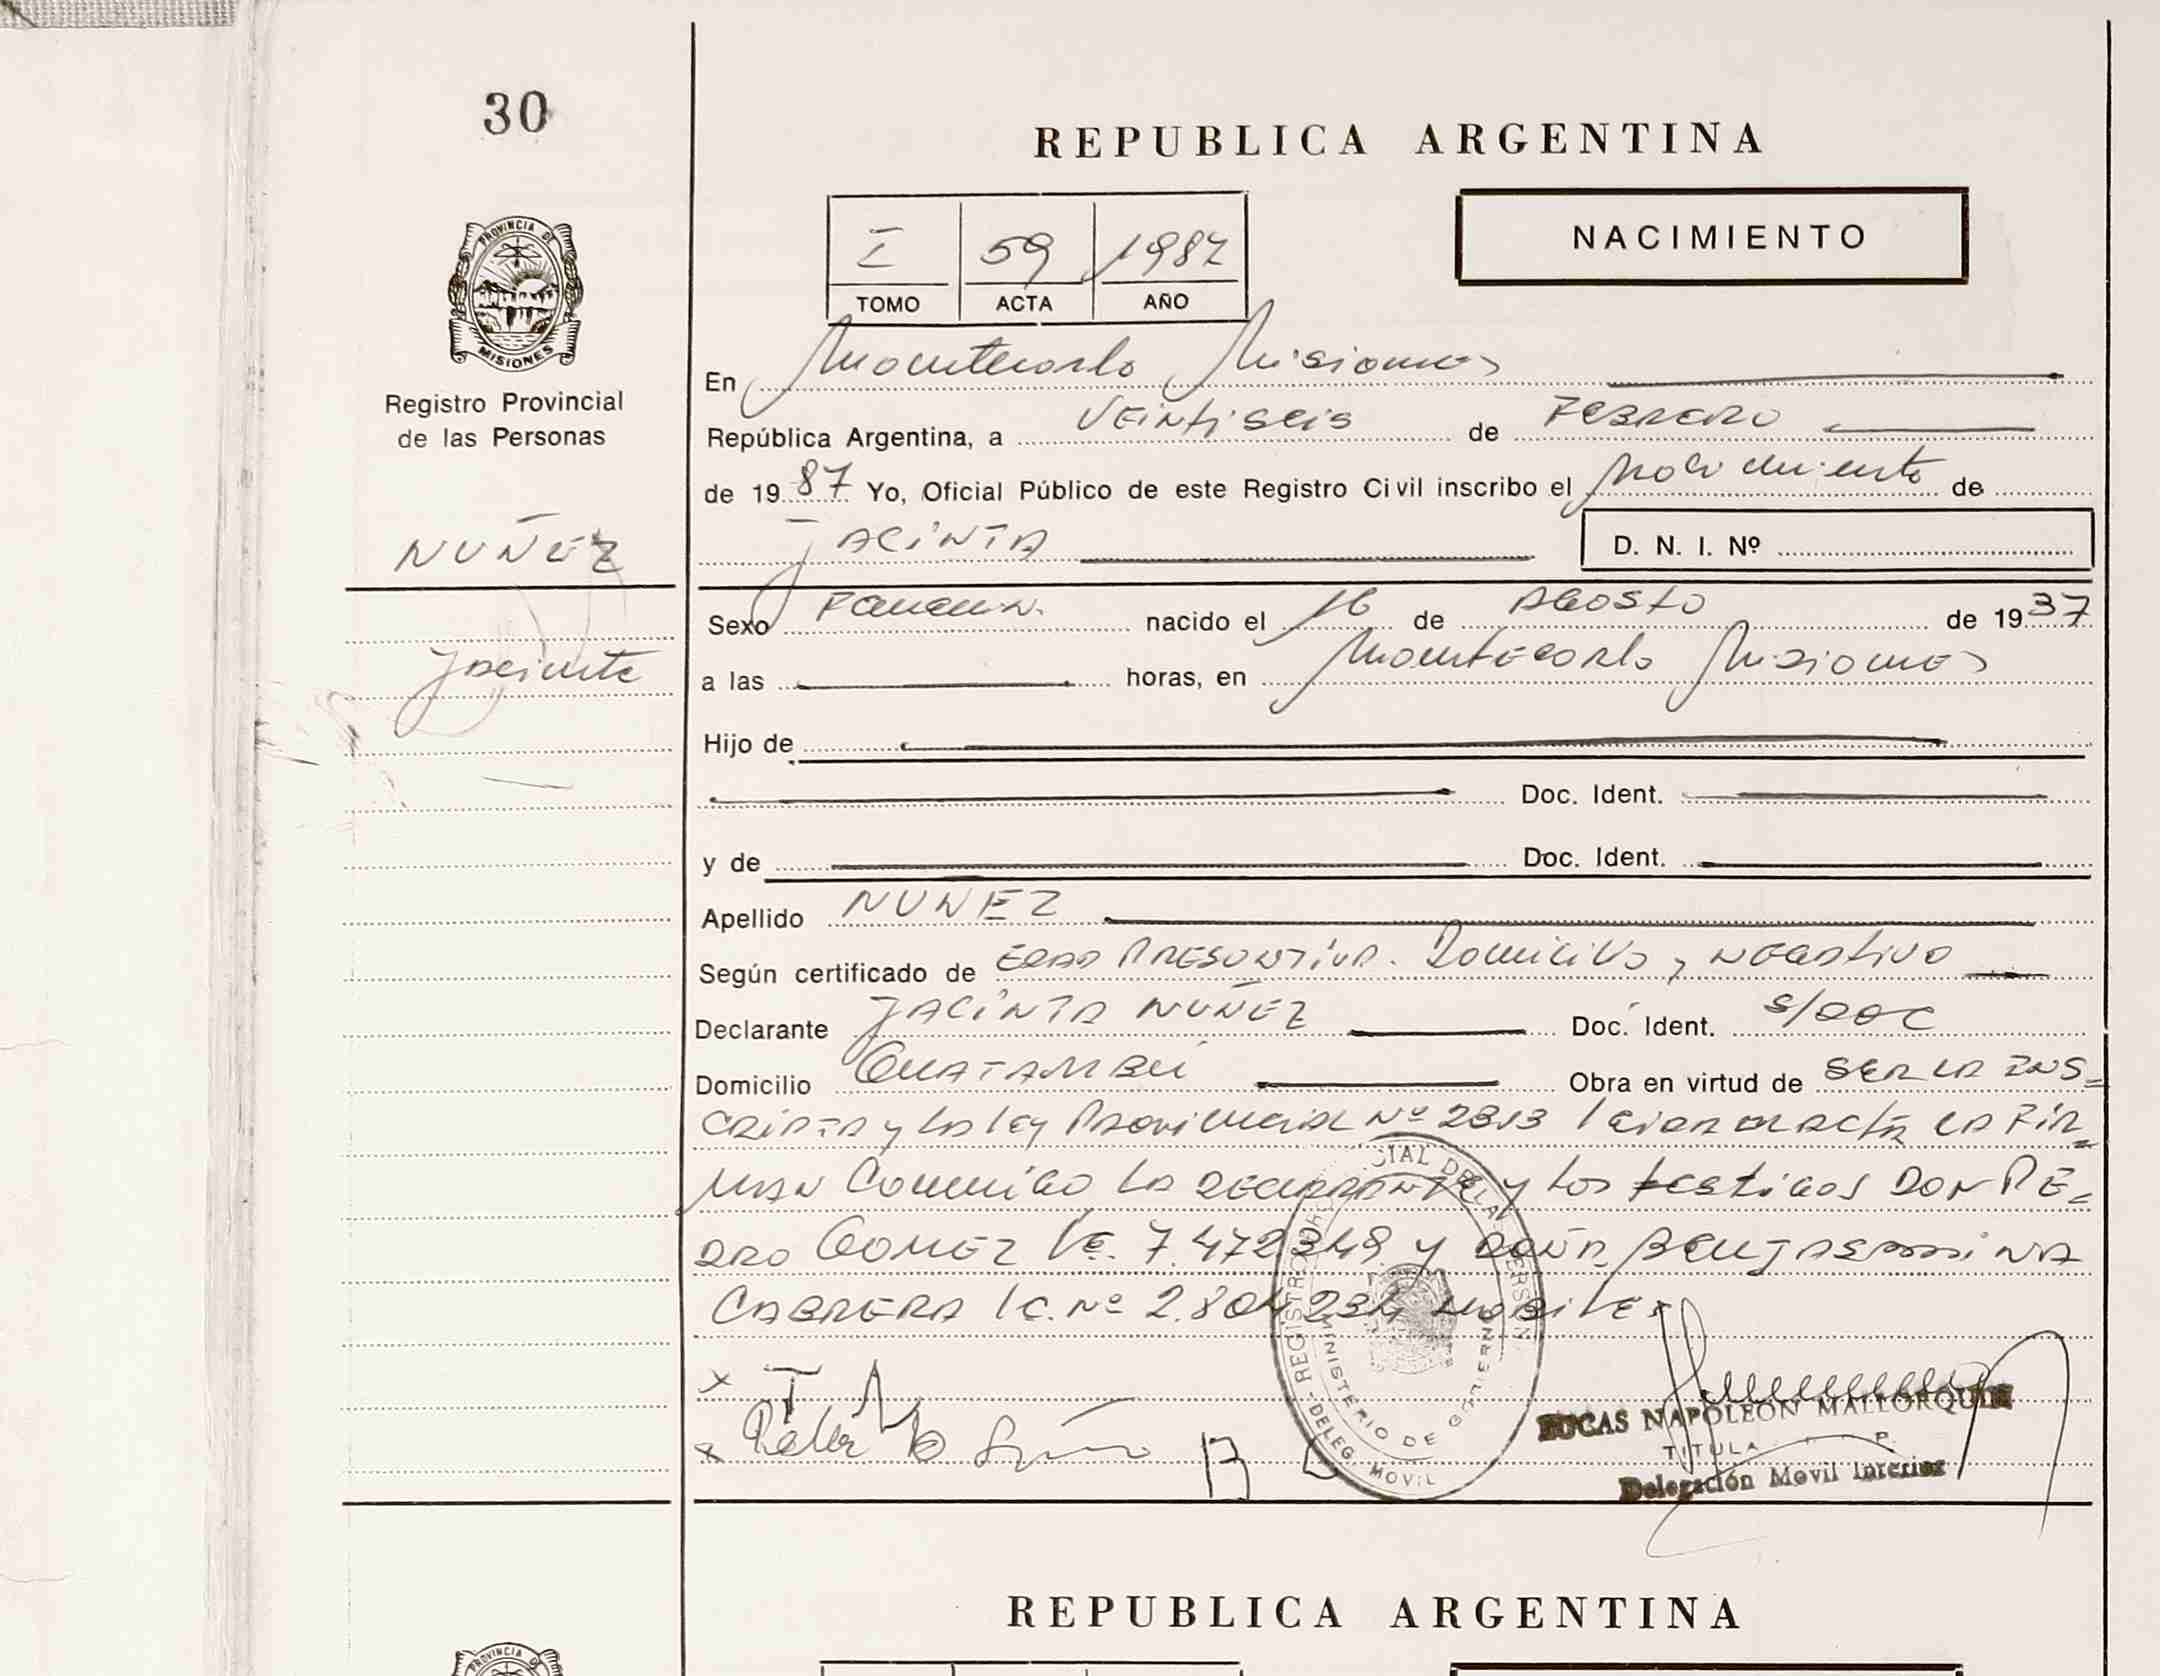 30
REPUBLICA ARGENTINA
I 59 1987
TOMO ACTA AÑO
NACIMIENTO
PROVINCIA DE
MISIONES
Registro Provincial
de las Personas
NUÑEZ
Jacinta
En Montecarlo Misiones
República Argentina, a VEINTISEIS de FEBRERO
de 1987 Yo, Oficial Público de este Registro Civil inscribo el Nacimiento de
JACINTA D. N. I. Nº
Sexo Femenin. nacido el 16 de AGOSTO de 1937
a las horas, en Montecarlo Misiones
Hijo de
Doc. Ident.
y de Doc. Ident.
Apellido NUNEZ
Según certificado de EDAD PRESUNTIVA. Domicilio y NEGATIVO
Declarante JACINTA NUÑEZ Doc. Ident. S/DOC
Domicilio GUATAMBÚ Obra en virtud de SER LA INS=
CRIPTA y LA LEY PROVINCIAL Nº 2313 Leida el ACTA LA FIR=
MAN Conmigo LA DECLARANTE y Los testigos DON PE=
DRO GOMEZ LE. 7.472348 y DOÑA BENJASMINA
CABRERA LC. Nº 2.804234 HABILES
x J N
x
B C
REGISTRO PROVINCIAL DE LAS PERSONAS
MINISTERIO DE GOBIERNO
DELEG. MOVIL
LUCAS NAPOLEON MALLORQUIN
TITULA P.
Delegación Movil Interior
REPUBLICA ARGENTINA
PROVINCIA DE